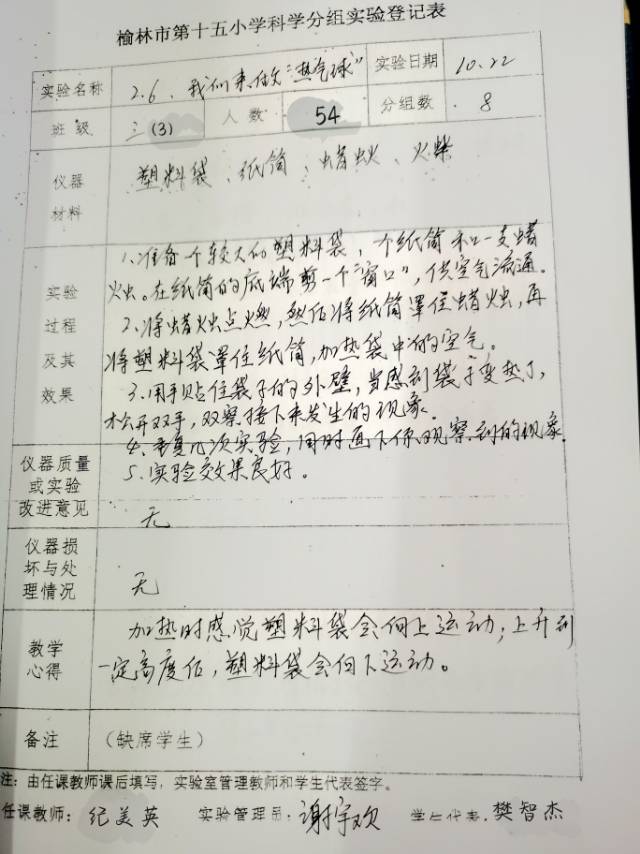 榆林市第十五小学科学分组实验登记表
实验名称 2.6、我们来做"热气球" 实验日期 10.22
班级 三(3) 人数 54 分组数 8
仪器材料 塑料袋、纸筒、蜡烛、火柴
实验过程及其效果
1、准备一个较大的塑料袋,一个纸筒和一支蜡
烛。在纸筒的底端剪一个"窗口",供空气流通。
2、将蜡烛点燃,然后将纸筒罩住蜡烛,再
将塑料袋罩住纸筒,加热袋中的空气。
3、用手贴住袋子的外壁,当感到袋子变热了,
松开双手,观察接下来发生的现象。
4、重复几次实验,同时画下你观察到的现象
5、实验效果良好。
仪器质量或实验改进意见 无
仪器损坏与处理情况 无
教学心得
加热时感觉塑料袋会向上运动;上升到
一定高度后,塑料袋会向下运动。
备注 (缺席学生)
注:由任课教师课后填写,实验室管理教师和学生代表签字。
任课教师:纪美英 实验管理员:谢宇欢 学生代表:樊智杰